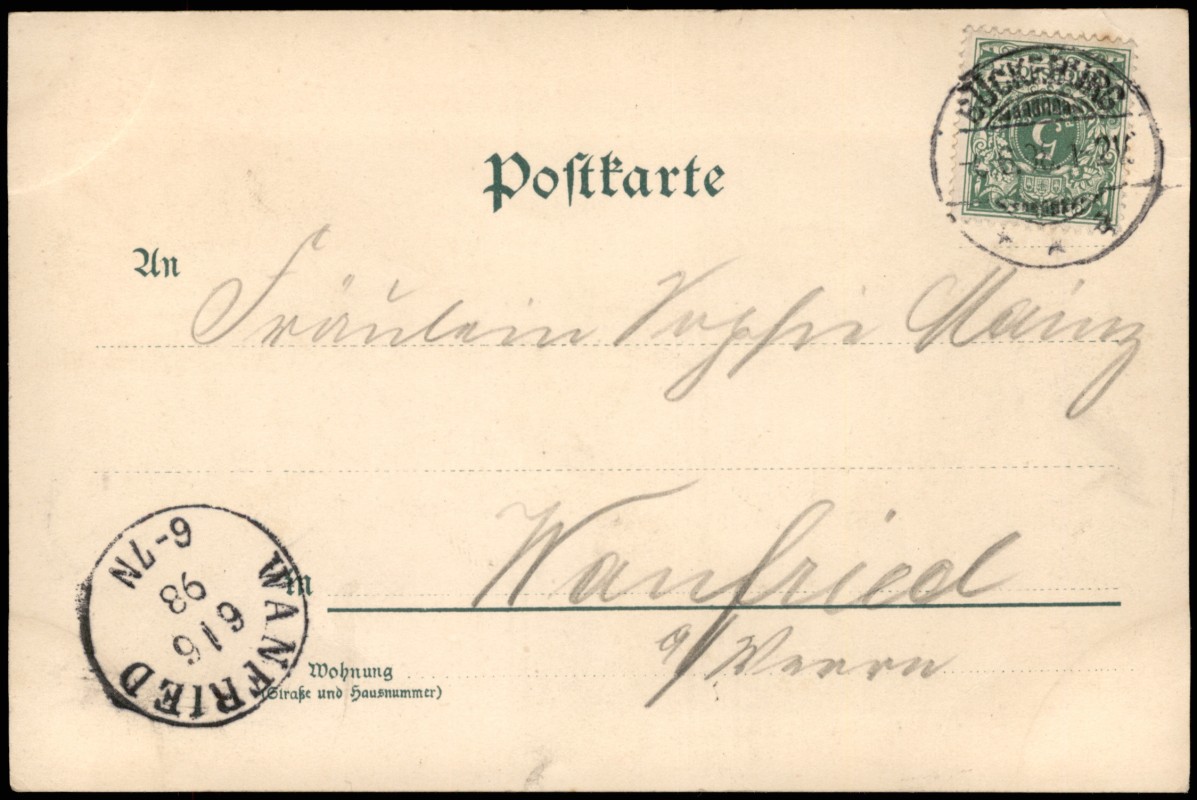 Postkarte
An
Fräulein Sophie Mainz
in
Wanfried
a/Werra
Wohnung
(Straße und Hausnummer)
BÜCKEBURG
5
WANFRIED
6 1 6
98
6-7N